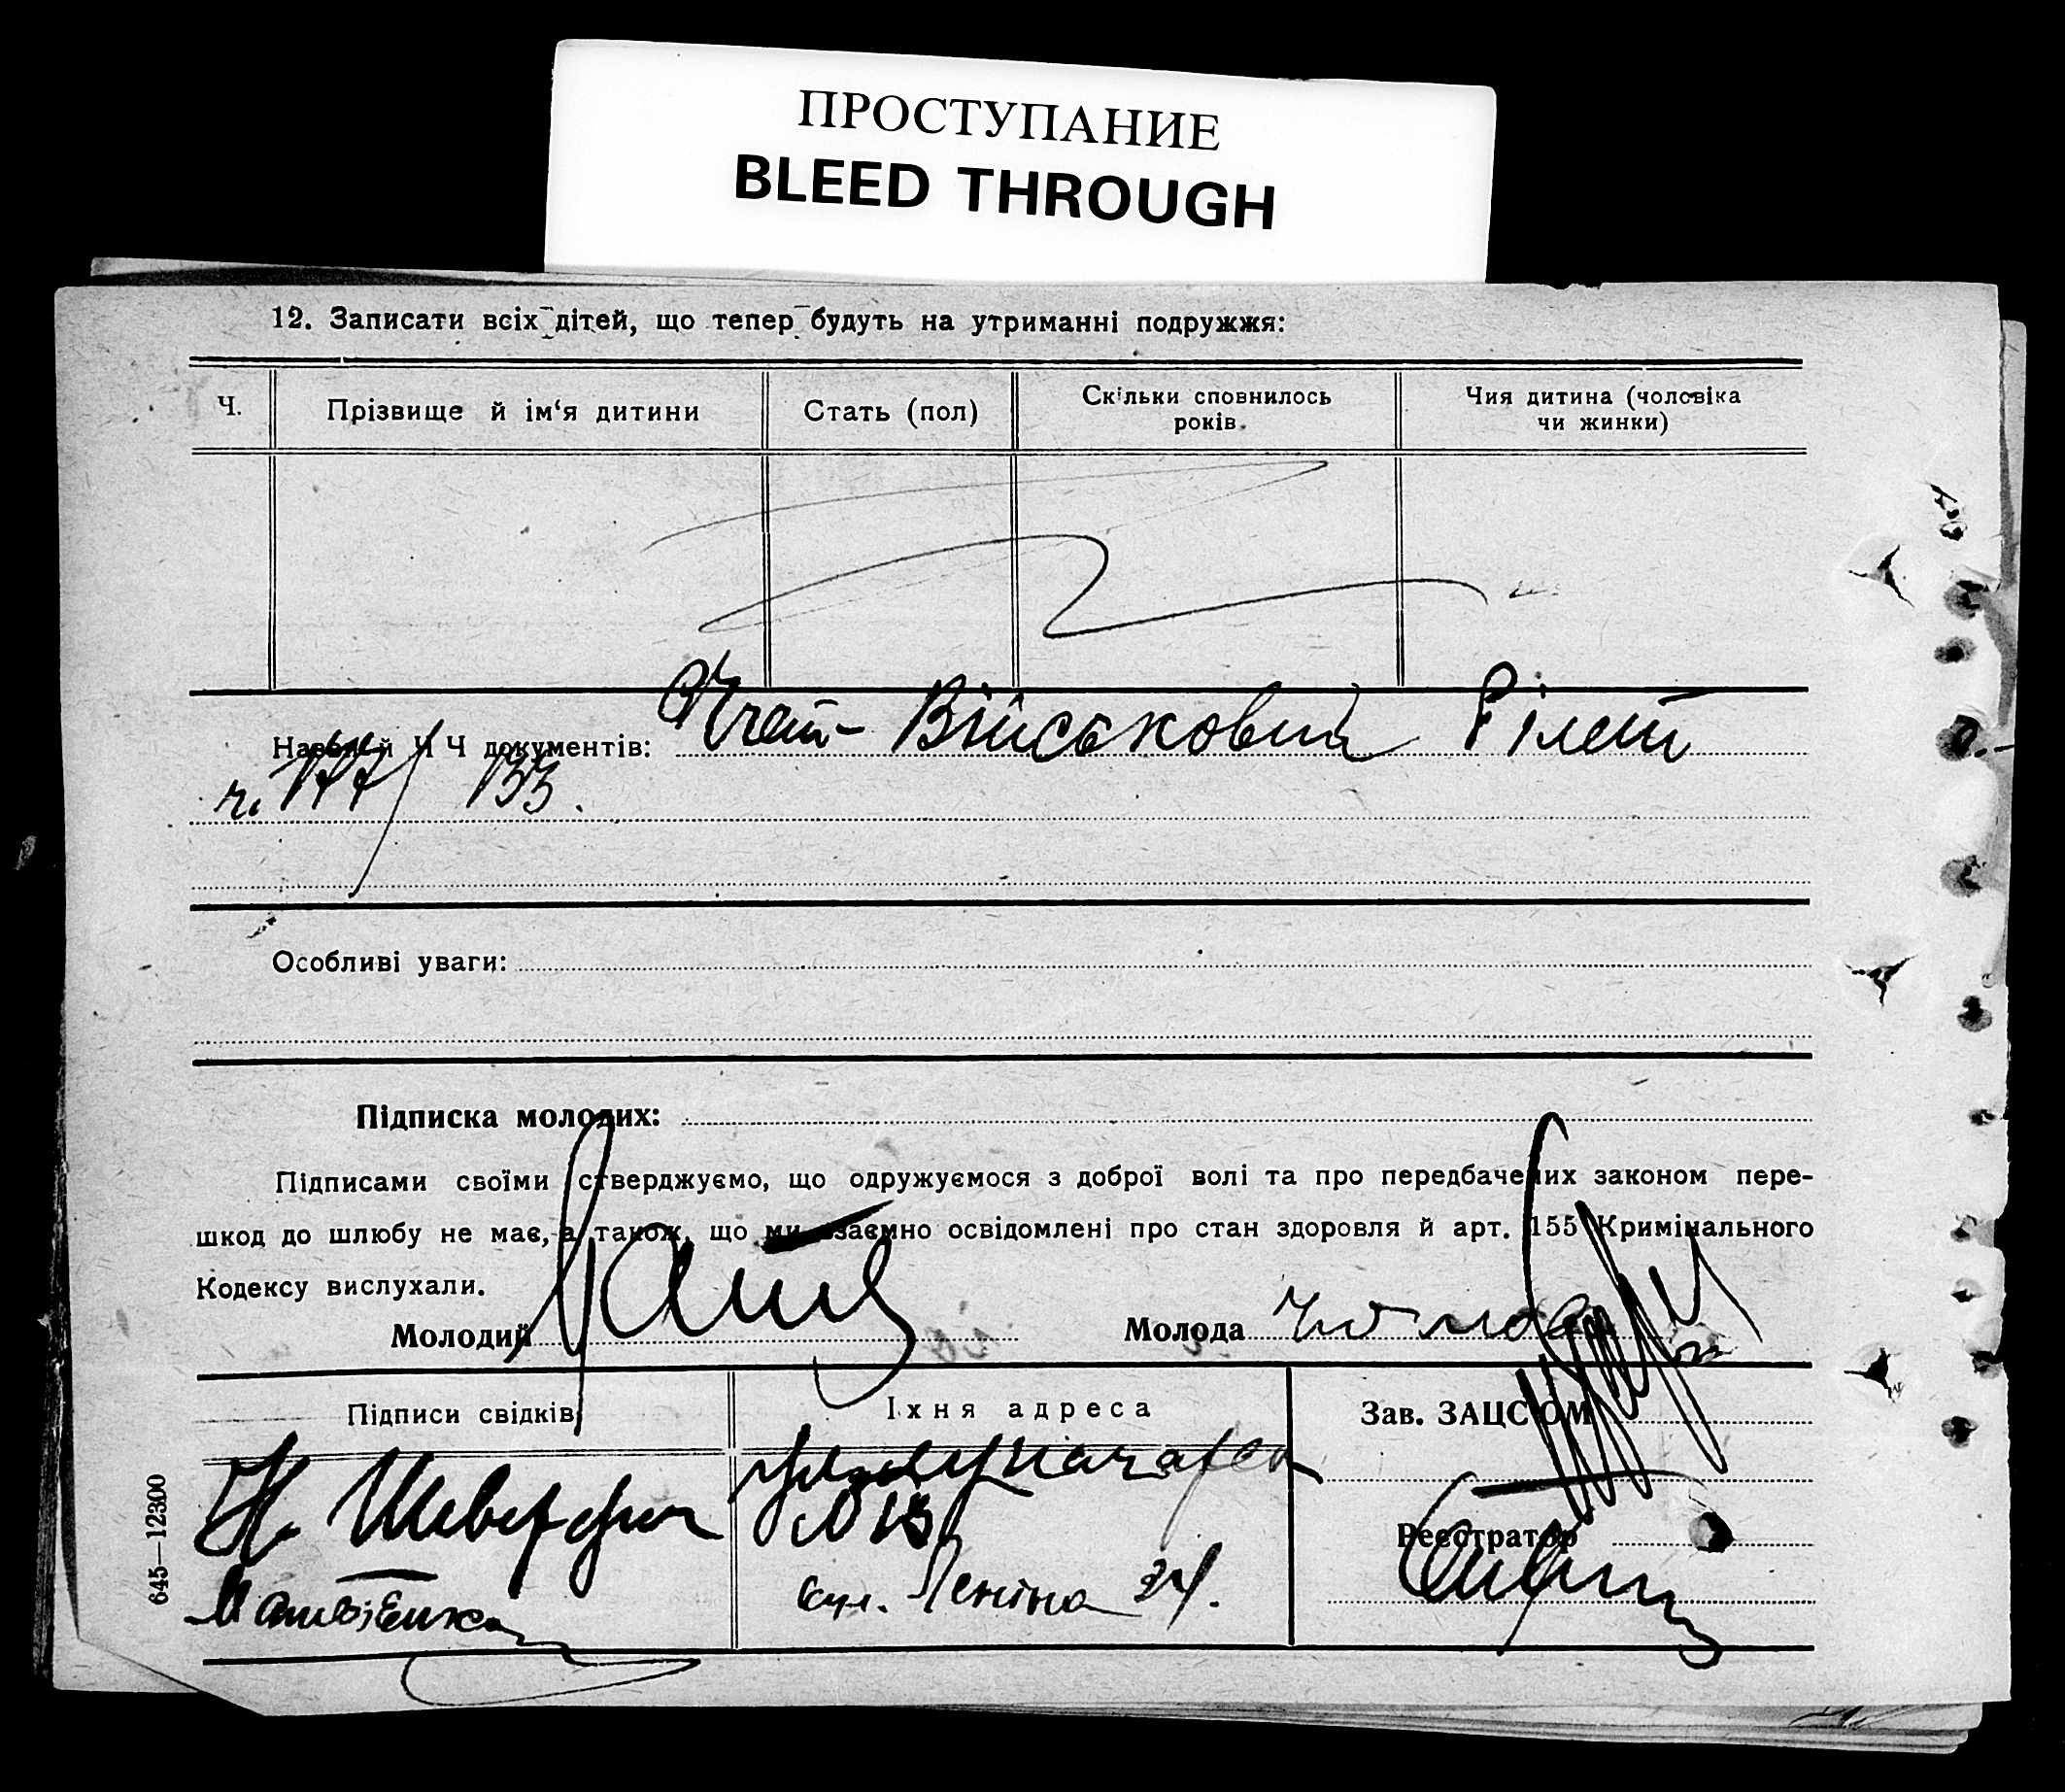 ПРОСТУПАНИЕ
BLEED THROUGH
12. Записати всіх дітей, що тепер будуть на утриманні подружжя:
Ч.
Прізвище й ім‘я дитини
Стать (пол)
Скільки сповнилось
років.
Чия дитина (чоловіка
чи жинки)
Назви й Ч Ч документів: Військовий білет
ч. 177/ 133.
Особливі уваги:
Підписка молодих:
Підписами своїми стверджуємо, що одружуємося з доброї волі та про передбачених законом пере-
шкод до шлюбу не має, а також, що ми взаємно освідомлені про стан здоровля й арт. 155 Кримінального
Кодексу вислухали.
Молодий
Молода
Підписи свідків
Їхня адреса
Зав. ЗАЦС'ОМ
Н.
№ 13
Реєстратор
Матвієнко
вул. Леніна 24.
645—12300